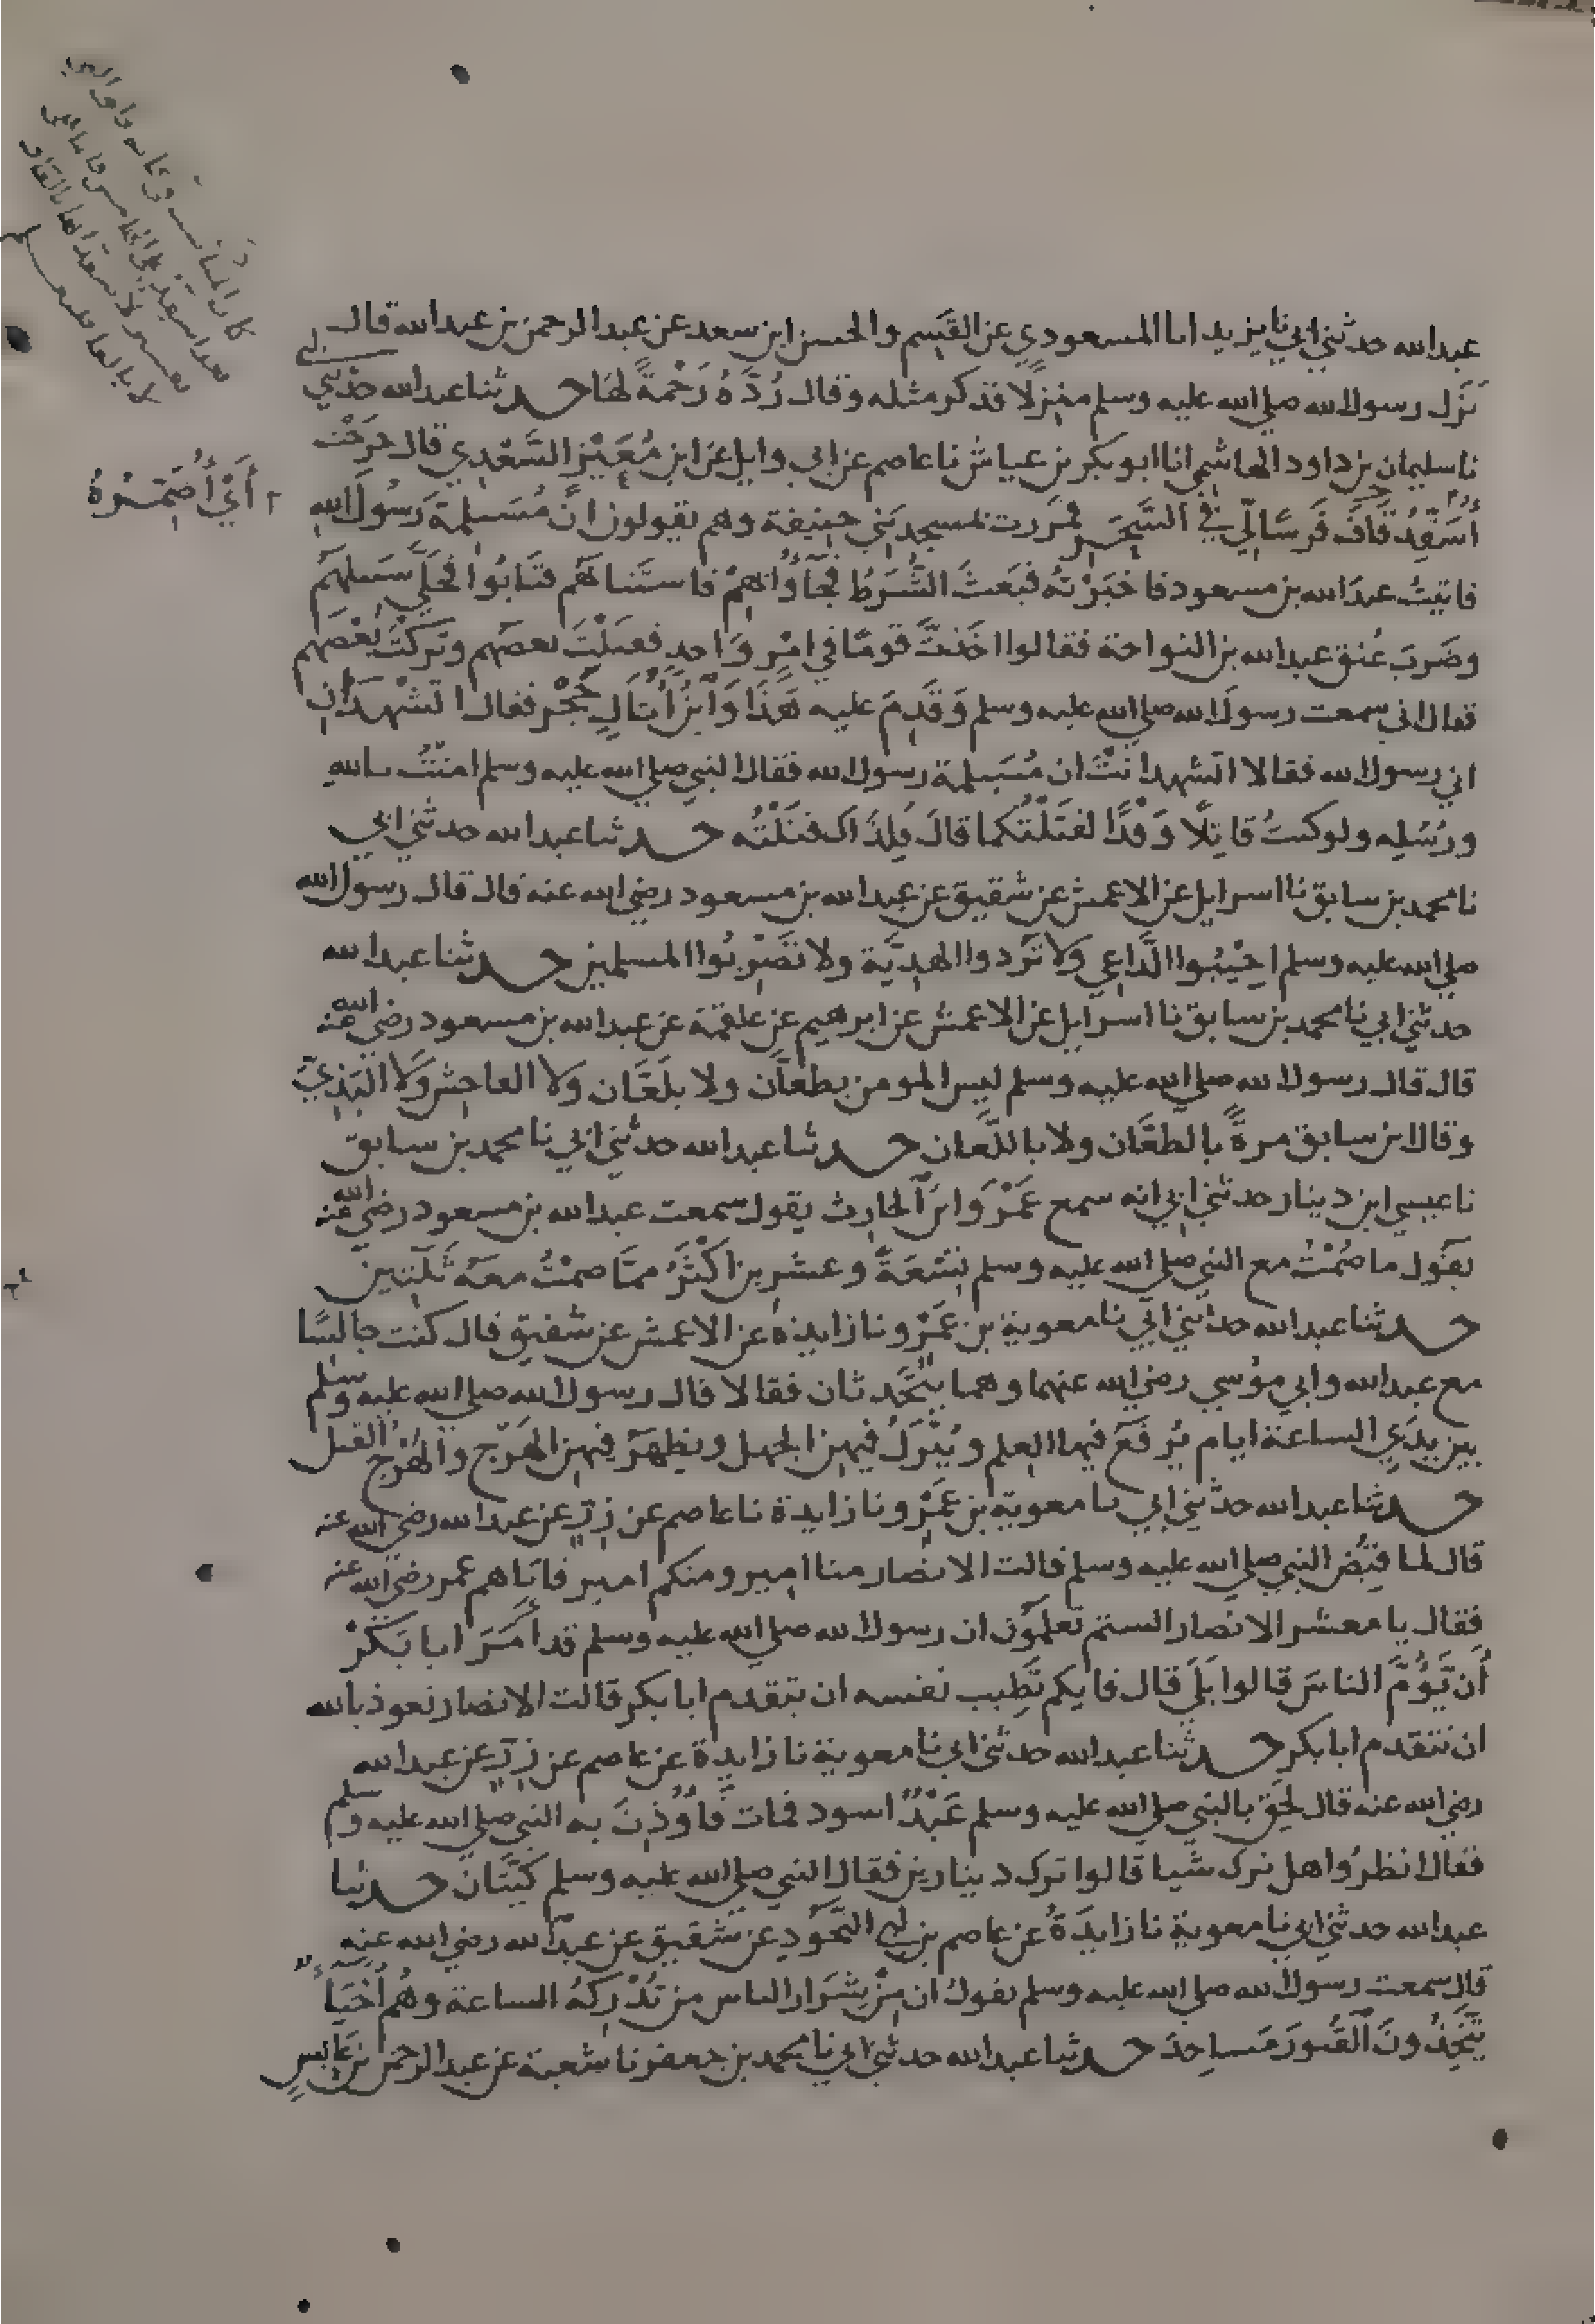 عبدالله حدثني ابي نا يزيد انا المسعودي عن القسم والحسن ابن سعد عن عبد الرحمن بن عبدالله قال
نَزَل رسول الله صلي الله عليه وسلم منزِلًا فذكر مثله وقال رُدَّهُ رَحْمةً لهَا حدثنا عبدالله حدثني ابي
نا سليمان بن داود الهاشمي انا ابو بكر بن عياش نا عاصم عن ابي وايل عن ابن مُعَيْز السَّعْدِي قال خرَجْت
أُسَقِّدُ فَرَسًا لي في السَّحَر فمررت بمسجد بَني حنيفة وهم يقولون انَّ مُسَيلمة رَسُولَ الله
فاتيتُ عبدَ الله بن مسعود فاخبَرْتهُ فبَعثَ الشُّرَطَ فجَآوُا بهِمْ فاستَتابهُم فتَابُوا فخلَّي سَبيلهُم
وضَربَ عُنق عبدالله بن النواحة فقالوا اخَذتَّ قومًا في امْرٍ وَاحدٍ فقتَلْتَ بعضَهم وتركْتَ بعْضَهم
فقال اني سمعت رسول الله صلي الله عليه وسلم وَقَدِمَ عليه هَذَا وَابْنُ أُثَالِ حَجْرٍ فقال اتشْهدَانِ
اني رسول الله فقالا اتشهد انْتَ ان مُسَيلمة رسول الله فقال النبي صلي الله عليه وسلم امنْتُ بالله
ورُسُلِه ولو كنتُ قاتِلًا وَفْدًا لقتَلْتُكما قالَ فلِذَاك قتَلْتُه حدثنا عبدالله حدثني ابي
نا محمد بن سابق نا اسرايل عن الاعمش عن شقيق عن عبد الله بن مسعود رضي الله عنه قال قال رسول الله
صلي الله عليه وسلم اجِيْبُوا الدَّاعِي ولا تَردوا الهدِيَّة ولا تضْرِبُوا المسلمين حدثنا عبدالله
حدثني ابي نا محمد بن سابق نا اسرايل عن الاعمش عن ابرهيم عن علقمة عن عبدالله بن مسعود رضي الله عنه
قال قال رسول الله صلي الله عليه وسلم ليس المومن بطعَّان ولا بلَعَّان ولا الفاحِش وَلا البَذِيّ
وقال ابن سابق مرةً بالطعَّان ولا باللعَّان حدثنا عبدالله حدثني ابي نا محمد بن سابق
نا عيسي ابن دينار حدثني ابي انه سمع عَمْرَو ابنَ الحارث يقول سمعت عبدالله بن مسعود رضي الله عنه
يقول ما صُمْتُ مع النبي صلي الله عليه وسلم تِسْعَةً وعشرين اكْثَرُ ممَّا صمْتُ معَهُ ثَلَثين
حدثنا عبدالله حدثني ابي نا معوية بن عَمْرٍو نا زايدة عن الاعمش عن شقيق قال كنت جالسًا
مع عبدالله وابي موُسي رضي الله عنهما وهما يتَحَدثان فقالا قال رسول الله صلي الله عليه وسلم
بين يدَي الساعة ايام يُرفَعُ فيها العِلم ويُنْزلُ فيهن الجهل ويظهَرُ فيهن الهَرْج والهَرْج القتل
حدثنا عبدالله حدثني ابي نا معوية بن عَمْرٍو نا زايدة نا عاصم عن زِرٍّ عن عبدالله رضي الله عنه
قال لما قُبِضَ النبي صلي الله عليه وسلم قالت الانصار منا امير ومنكم امير فاتاهم عمر رضي الله عنه
فقال يا معشر الانصار الستم تعلمون ان رسول الله صلي الله عليه وسلم قد أَمَرَ ابا بَكرْ
أن يَوُمَّ الناسَ قالوا بَلَي قال فايكم تَطِيب نفسه ان يتقدم ابا بكر قالت الانصار نعوذ بالله
ان نتقدم ابا بكر حدثنا عبدالله حدثني ابي نا معوية نا زايدة عن عاصم عن زِرٍّ عن عبدالله
رضي الله عنه قال لحِقَ بالنبي صلي الله عليه وسلم عَبْدٌ اسود فمات فأوذِنَ به النبي صلي الله عليه وسلم
فقال انظرُوا هل ترك شيا قالوا ترك دينارين فقال النبي صلي الله عليه وسلم كَيَّتَان حدثنا
عبدالله حدثني ابي نا معوية نا زايدَةُ عن عاصم بن ابي النَّجُود عن شقيق عن عبدالله رضي الله عنه
قال سمعت رسول الله صلي الله عليه وسلم يقول ان مِنْ شِرَار الناس من تُدْرِكهُ الساعة وهُم أَحْيَاءٌ
يَتَّخِذُونَ القُبورَ مَساجِدَ حدثنا عبدالله حدثني ابي نا محمد بن جعفر نا شعبة عن عبد الرحمن بن عابسٍ
أيْ أُضَمِّرُهُ